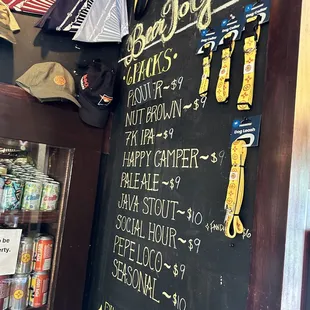 Beer To Go
6 PACKS
PIQUIR~$9
NUT BROWN~$9
7K IPA~$9
HAPPY CAMPER~$9
PALE ALE~$9
JAVA STOUT~$10
SOCIAL HOUR~$9
PEPE LOCO~$9
SEASONAL~$10
Dog Leash
$6